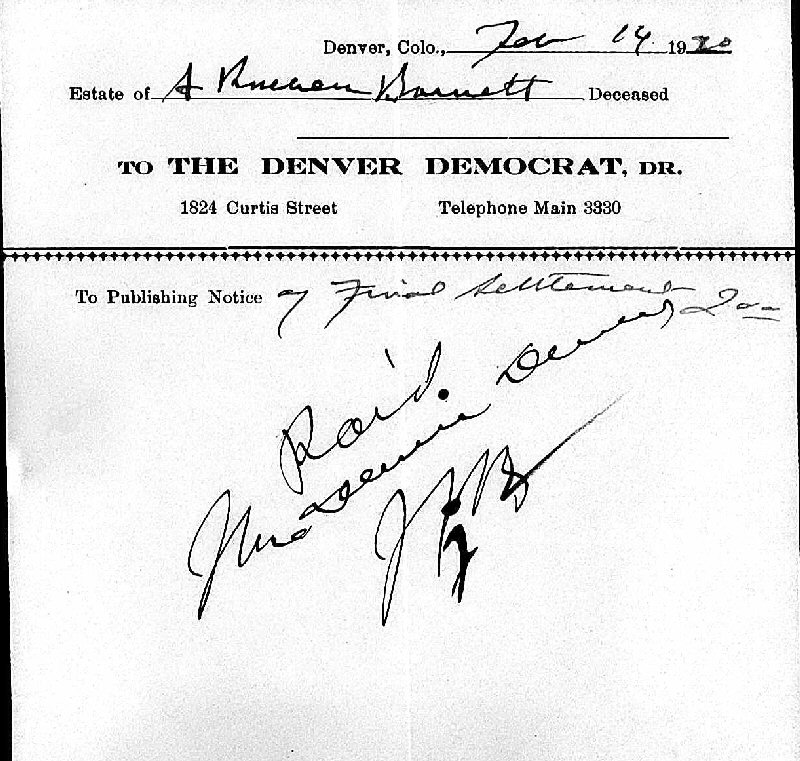 Denver, Colo., Feb 14 1920
Estate of A Barnett Deceased
TO THE DENVER DEMOCRAT, DR.
1824 Curtis Street Telephone Main 3330
To Publishing Notice of Final Settlement 200
Paid.
The Denver Democrat